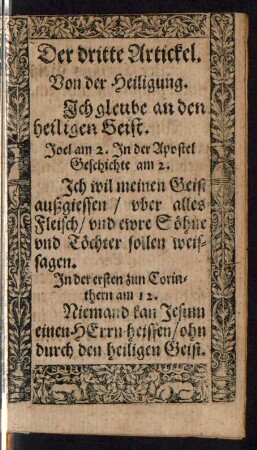 Der dritte Artickel.
Von der Heiligung.
Ich gleube an den
heiligen Geist.
Joel am 2. In der Apostel
Geschichte am 2.
Ich wil meinen Geist
außgiessen / vber alles
Fleisch / vnd ewre Söhne
vnd Töchter sollen weis-
sagen.
In der ersten zun Corin-
thern am 12.
Niemand kan Jesum
einen HErrn heissen / ohn
durch den heiligen Geist.